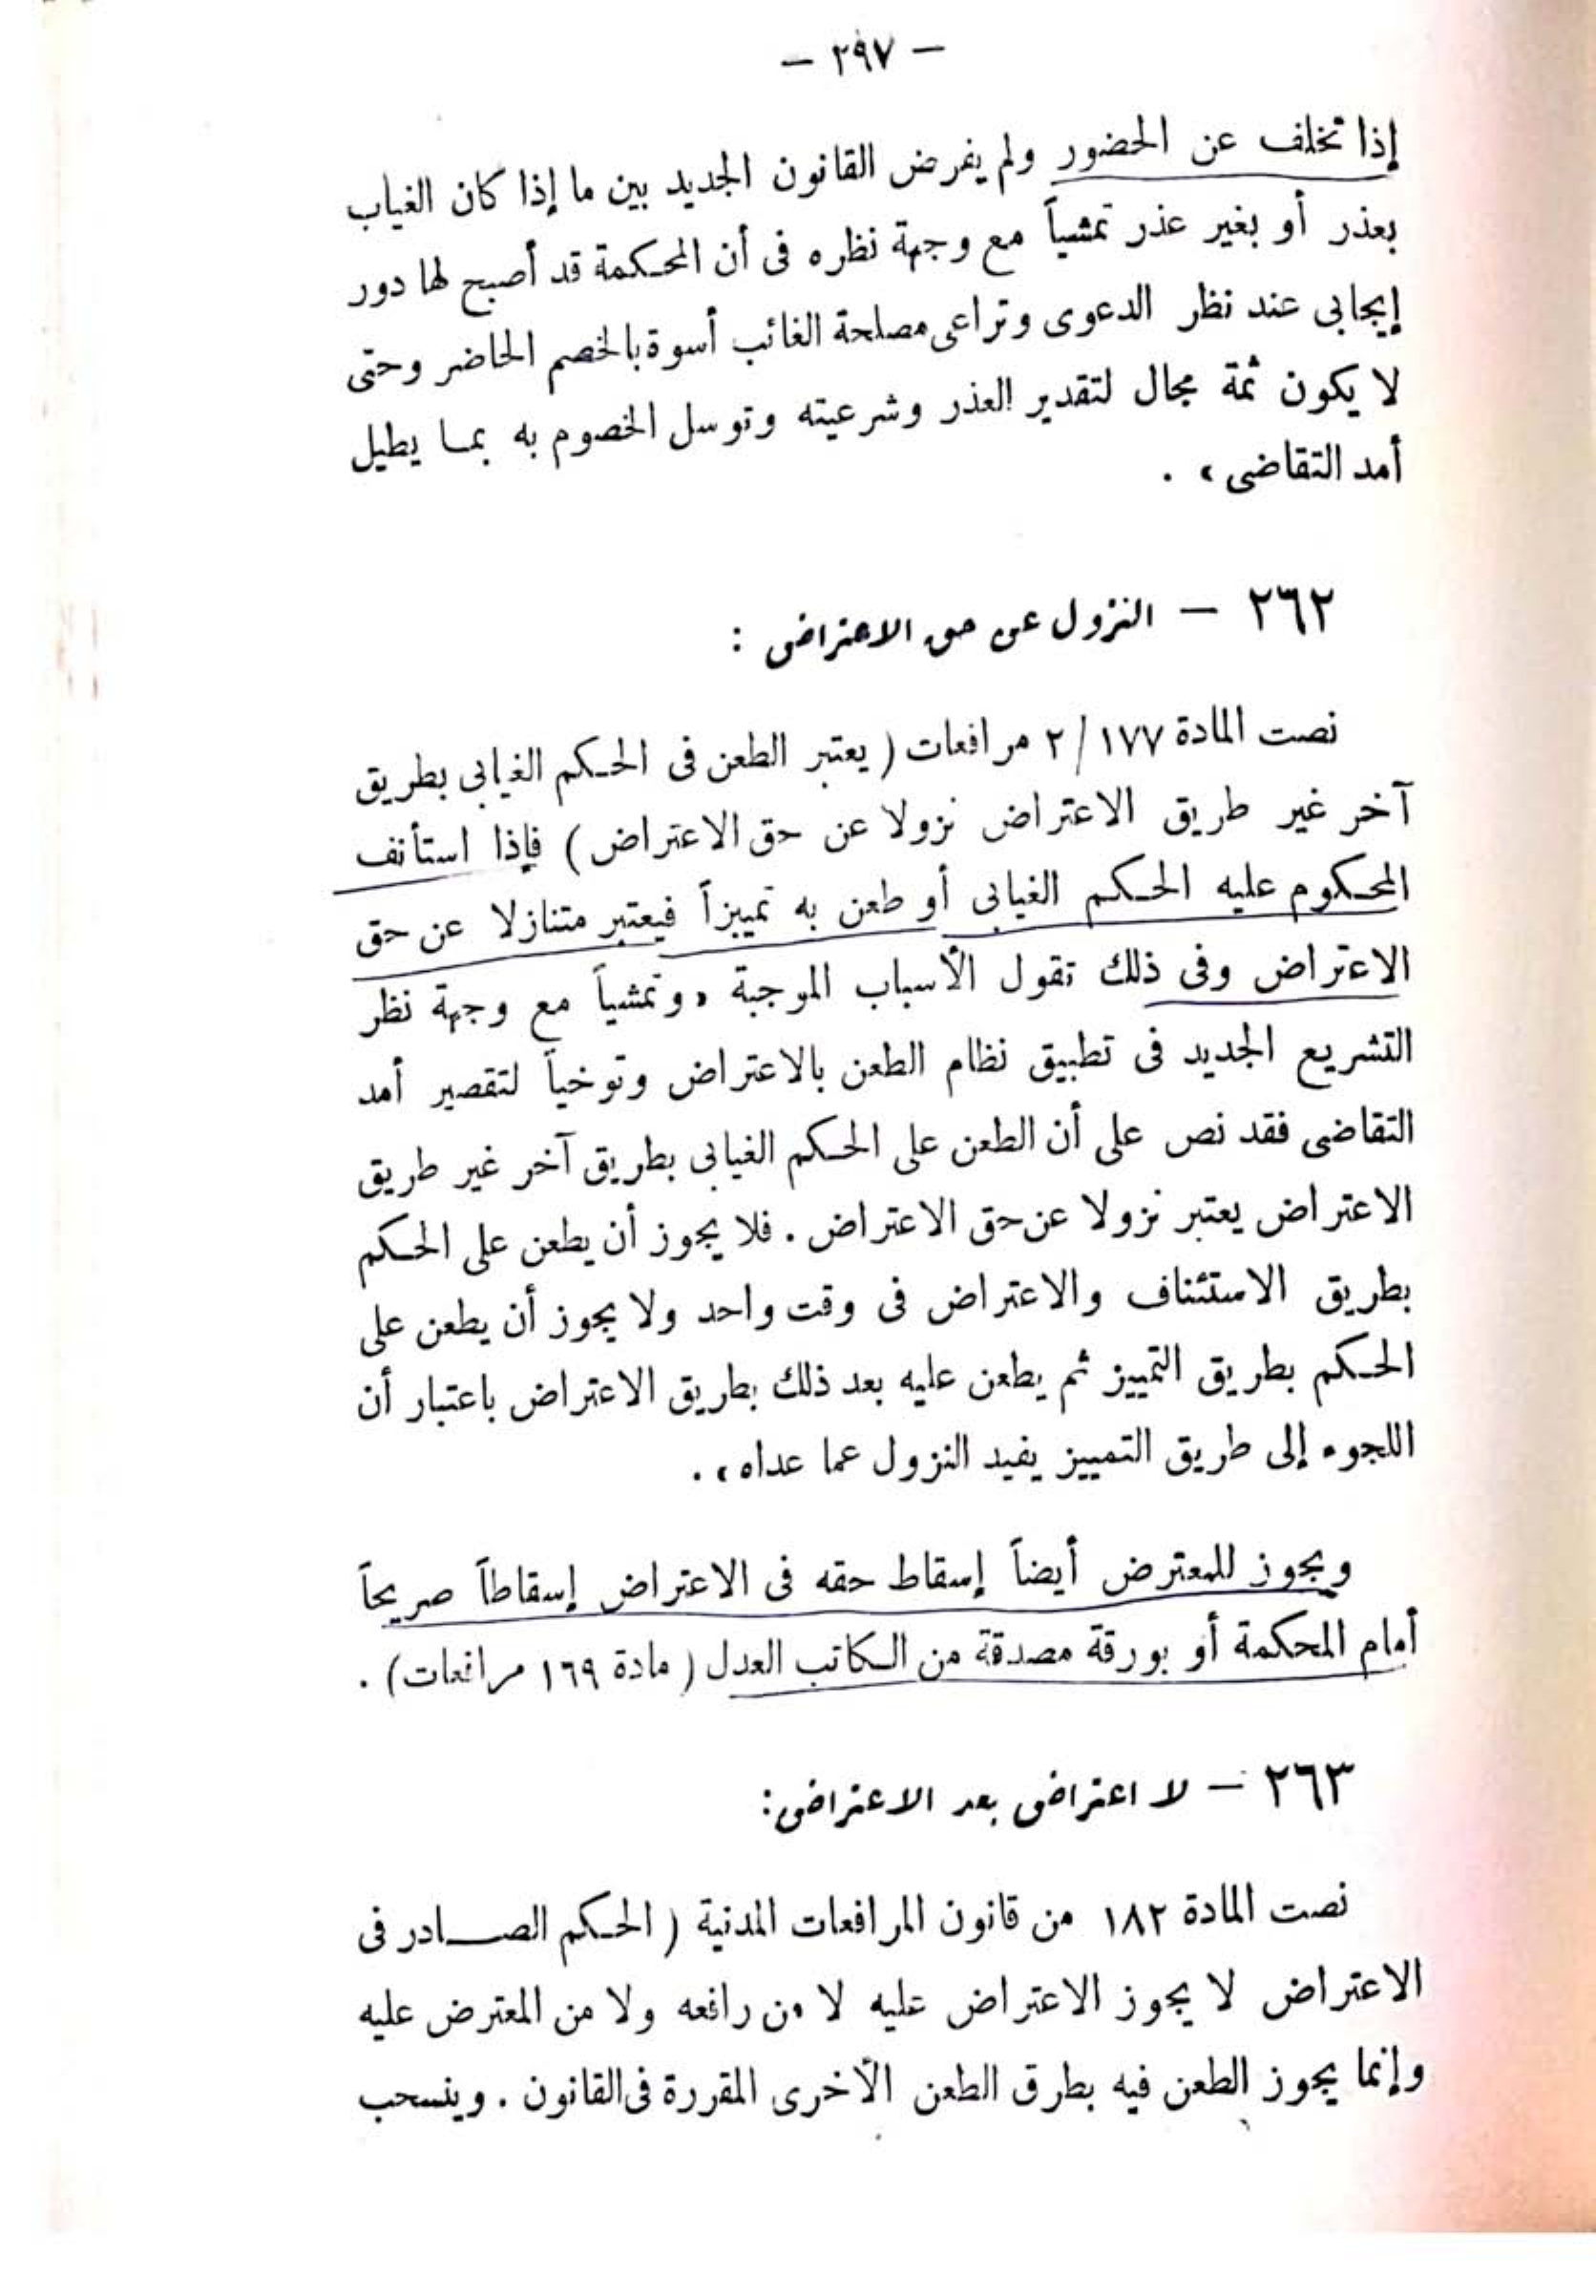 — ٢٩٧ —
إذا تخلف عن الحضور ولم يفرض القانون الجديد بين ما إذا كان الغياب
بعذر أو بغير عذر تمشياً مع وجهة نظره فى أن المحكمة قد أصبح لها دور
إيجابى عند نظر الدعوى وتراعى مصلحة الغائب أسوة بالخصم الحاضر وحتى
لا يكون ثمة مجال لتقدير العذر وشرعيته وتوسل الخصوم به بما يطيل
أمد التقاضى » .
٢٦٢ — النزول عن حق الاعتراض :
نصت المادة ١٧٧ / ٢ مرافعات ( يعتبر الطعن فى الحكم الغيابى بطريق
آخر غير طريق الاعتراض نزولا عن حق الاعتراض ) فإذا استأنف
المحكوم عليه الحكم الغيابى أو طعن به تمييزاً فيعتبر متنازلا عن حق
الاعتراض وفى ذلك تقول الأسباب الموجبة « وتمشياً مع وجهة نظر
التشريع الجديد فى تطبيق نظام الطعن بالاعتراض وتوخياً لتقصير أمد
التقاضى فقد نص على أن الطعن على الحكم الغيابى بطريق آخر غير طريق
الاعتراض يعتبر نزولا عن حق الاعتراض . فلا يجوز أن يطعن على الحكم
بطريق الاستئناف والاعتراض فى وقت واحد ولا يجوز أن يطعن على
الحكم بطريق التمييز ثم يطعن عليه بعد ذلك بطريق الاعتراض باعتبار أن
اللجوء إلى طريق التمييز يفيد النزول عما عداه » .
ويجوز للمعترض أيضاً إسقاط حقه فى الاعتراض إسقاطاً صريحاً
أمام المحكمة أو بورقة مصدقة من الكاتب العدل ( مادة ١٦٩ مرافعات ) .
٢٦٣ — لا اعتراض بعد الاعتراض :
نصت المادة ١٨٢ من قانون المرافعات المدنية ( الحكم الصادر فى
الاعتراض لا يجوز الاعتراض عليه لا من رافعه ولا من المعترض عليه
وإنما يجوز الطعن فيه بطرق الطعن الأخرى المقررة فى القانون . وينسحب